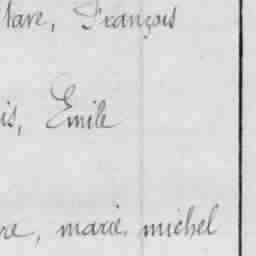 tave, François
is, Emile
re, marie, michel